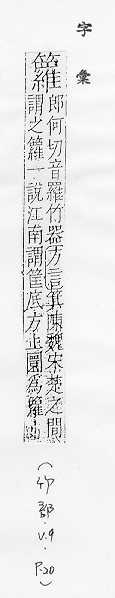 字彙
籮
郎何切音羅竹器方言箕陳魏宋楚之間謂之籮一說江南謂筐底方上圜為籮
(竹部.V.9.P.20)